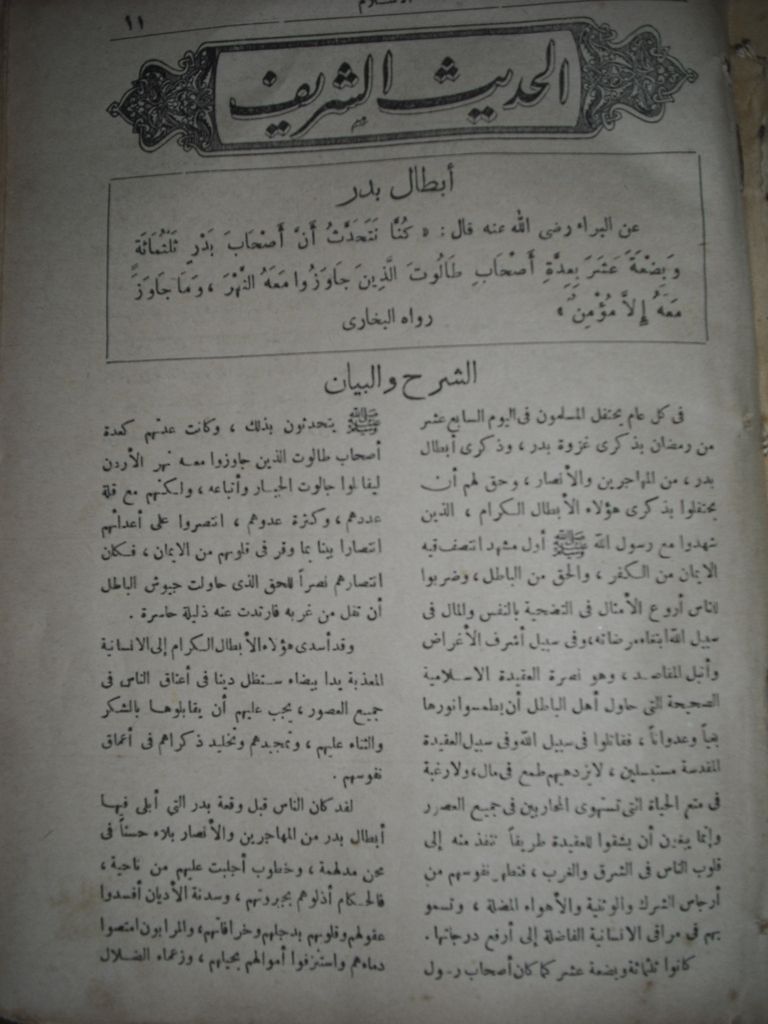 ١١
الحديث الشريف
أبطال بدر
عن البراء رضى الله عنه قال : « كُنَّا نَتَحَدَّثُ أَنَّ أَصْحَابَ بَدْرٍ ثَلَثُمَائَة
وَبِضْعَةَ عَشَرَ بِعِدَّةِ أَصْحَابِ طَالُوتَ الَّذِينَ جَاوَزُوا مَعَهُ النَّهْرَ ، وَمَا جَاوَزَ
مَعَهُ إِلاَّ مُؤْمِنٌ » رواه البخارى
الشرح والبيان
فى كل عام يحتفل المسلمون فى اليوم السابع عشر
من رمضان بذكرى غزوة بدر ، وذكرى أبطال
بدر ، من المهاجرين والأنصار ، وحق لهم أن
يحتفلوا بذكرى هؤلاء الأبطال الكرام ، الذين
شهدوا مع رسول الله ﷺ أول مشهد انتصف فيه
الايمان من الكفر ، والحق من الباطل ، وضربوا
للناس أروع الأمثال فى التضحية بالنفس والمال فى
سبيل الله ابتغاء مرضاته ، وفى سبيل أشرف الأغراض
وأنبل المقاصد ، وهو نصرة العقيدة الاسلامية
الصحيحة التى حاول أهل الباطل أن يطمسوا نورها
بغياً وعدواناً ، فقاتلوا فى سبيل الله وفى سبيل العقيدة
المقدسة مستبسلين ، لا يزدهيهم طمع فى مال ، ولا رغبة
فى متع الحياة التى تستهوى المحاربين فى جميع العصور
وإنما يبغون أن يشقوا للعقيدة طريقاً تنفذ منه إلى
قلوب الناس فى الشرق والغرب ، فتطهر نفوسهم من
أرجاس الشرك والوثنية والأهواء المضلة ، وتسمو
بهم فى مراقى الانسانية الفاضلة إلى أرفع درجاتها .
كانوا ثلثمائة وبضعة عشر كما كان أصحاب رسول
ﷺ يتحدثون بذلك ، وكانت عدتهم كعدة
أصحاب طالوت الذين جاوزوا معه نهر الأردن
ليقاتلوا جالوت الجبار وأتباعه ، ولكنهم مع قلة
عددهم ، وكثرة عدوهم ، انتصروا على أعدائهم
انتصارا بينا بما وقر فى قلوبهم من الايمان ، فكان
انتصارهم نصراً للحق الذى حاولت جيوش الباطل
أن تفل من غربه فارتدت عنه ذليلة حاسرة .
وقد أسدى هؤلاء الأبطال الكرام إلى الانسانية
المعذبة يدا بيضاء ستظل دينا فى أعناق الناس فى
جميع العصور ، يجب عليهم أن يقابلوها بالشكر
والثناء عليهم ، وتمجيدهم وتخليد ذكراهم فى أعماق
نفوسهم .
لقد كان الناس قبل وقعة بدر التى أبلى فيها
أبطال بدر من المهاجرين والأنصار بلاء حسناً فى
محن مدلهمة ، وخطوب أجلبت عليهم من ناحية ،
فالحكام أذلوهم بجبروتهم ، وسدنة الأديان أفسدوا
عقولهم وقلوبهم بدجلهم وخرافاتهم ، والمرابون امتصوا
دماءهم واستنزفوا أموالهم بحيلهم ، وزعماء الضلال